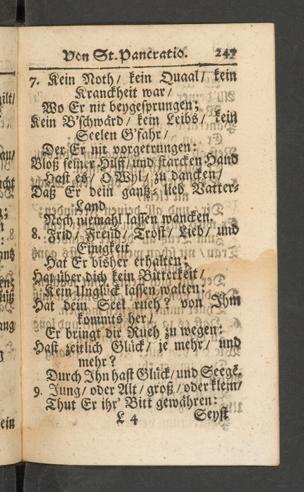 Von St. Pancratio. 247
7. Kein Noth/ kein Quaal/ kein
Kranckheit war/
Wo Er nit beygesprungen;
Kein B'schwärd/ kein Leibs/ kein
Seelen G'fahr/
Der Er nit vorgetrungen:
Bloß seiner Hilff/ und starcken Hand
Hast es/ O Wyl/ zu dancken/
Daß Er dein gantz-lieb Vatter-
Land
Noch niemahl lassen wancken.
8. Frid/ Freud/ Trost/ Lieb/ und
Einigkeit
Hat Er bisher erhalten;
Hat über dich kein Bitterkeit/
Kein Unglück lassen walten:
Hat dein Seel rueh? von Ihm
kommts her/
Er bringt dir Rueh zu wegen:
Hast zeitlich Glück/ je mehr/ und
mehr?
Durch Ihn hast Glück/ und Seege.
9. Jung/ oder Alt/ groß/ oder klein/
Thut Er ihr' Bitt gewähren:
L 4 Seyst